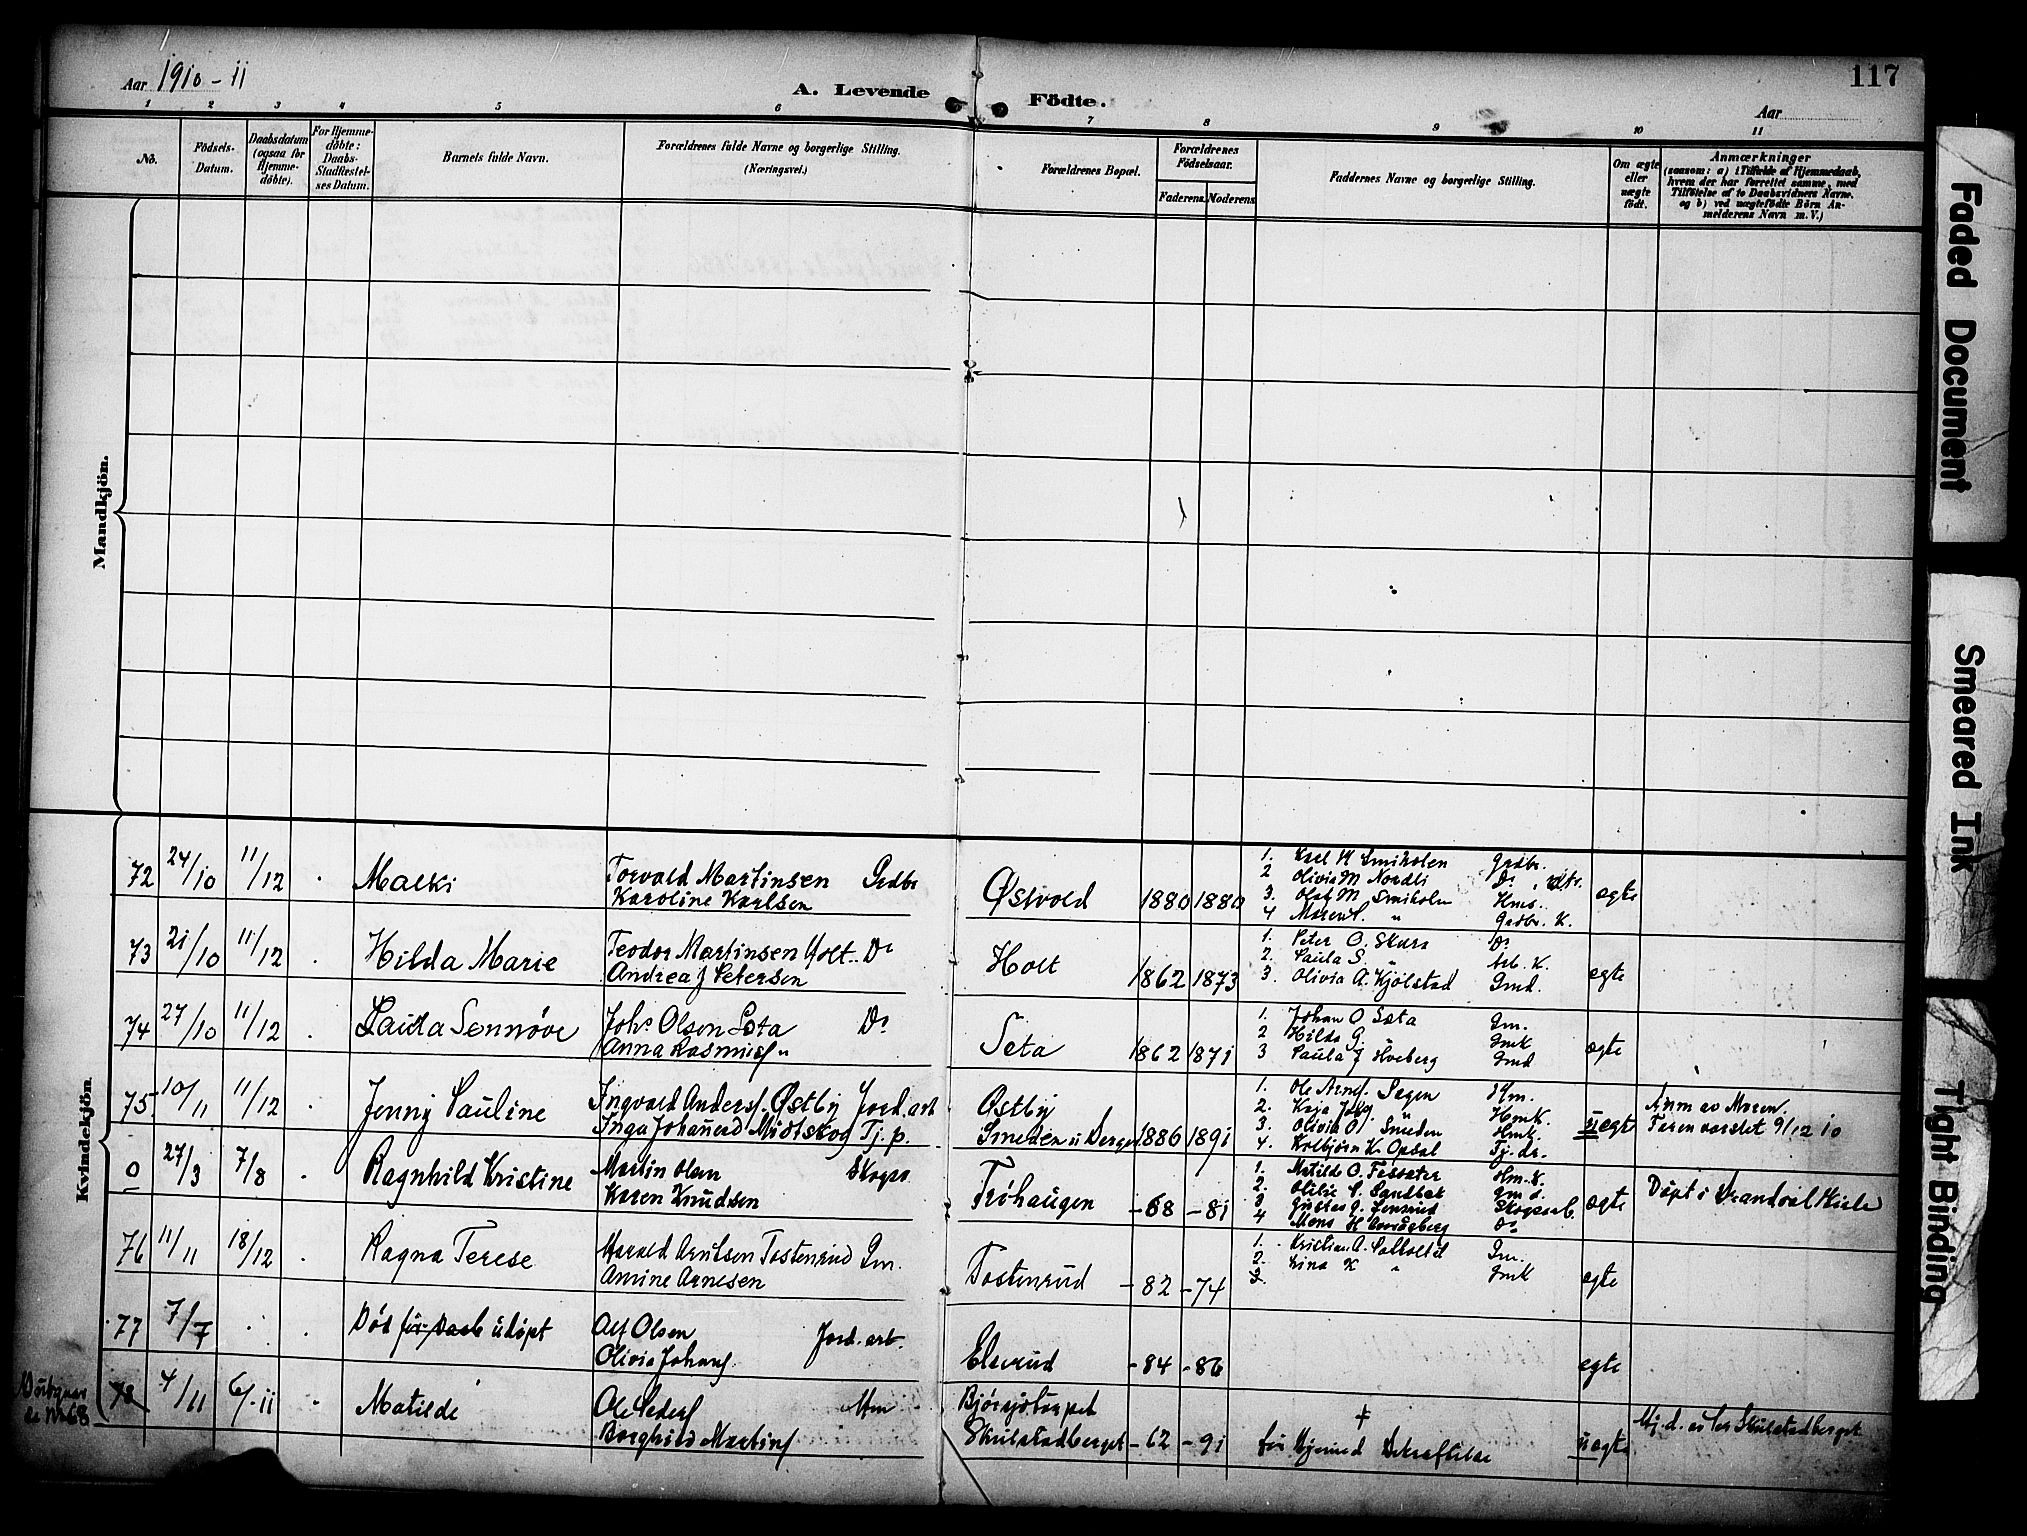 Aar 1910-11
A. Levende Födte.
Aar
117
1 2 3 4 5 6 7 8 9 10 11
No.
Födsels-Datum.
Daabsdatum (ogsaa for Hjemme-döbte).
For Hjemme-döbte: Daabs-Stadfæstel-ses Datum.
Barnets fulde Navn.
Forældrenes fulde Navne og borgerlige Stilling. (Næringsvei.)
Forældrenes Bopæl.
Forældrenes Födselsaar.
Faderens. Moderens.
Faddernes Navne og borgerlige Stilling.
Om ægte eller uægte født.
Anmærkninger
(saasom: a) i Tilfælde af Hjemmedaab,
hvem der har forrettet samme, med
Tilföielse af to Daabsvidners Navne,
og b) ved uægtefödte Börn An-
melderens Navn m. V.)
Mandkjön.
Kvindekjön.
72 24/10 11/12 Malki Torvald Martinsen Grdbr
Karoline Karlsen
Østvold 1880 1880
1. Smiholen Grdbr.
2 Olivia M Nordli Do
3. Olaf M. Smiholen Hms.
4 Maren " Grdbr. K.
egte
73 21/10 11/12 Hilda Marie Teodor Martinsen Holt Do
Andrea J Petersen
Holt 1862 1873
1. Peter O. Skara Do
2. Paula S. " Arb. K.
3. Olivia A. Kjölstad Gmd.
egte
74 27/10 11/12 Laida Sennöve Johs Olsen Sæta Do
Anna Rasmusf "
Seta 1862 1871
1. Johan O Sæta Gm.
2 Hilda G. " GmK
3 Paula J Hveberg Gmd
egte
75 10/11 11/12 Jenny Pauline Ingvald Andersf. Østby Jord.arb
Inga Johansd Midtskog Tj. p.
Østby
Smeden u Berget 1886 1891
1. Ole Arnef. Sagen Hm.
2. Kaja " HmK.
3. Olivia O. Smeden Hmk.
4. Kolbjörn K. Opsal Tj. dr.
uegte
Anm av Moren.
Faren varslet 9/12 10
0 27/3 7/8 Ragnhild Kristine Martin Olsen Skogsa
Karen Knudsen
Fröhaugen -68 -81
1. Matilde O. Hm. K.
2. Otilie Sandbak Gmd.
3 Gustav Skogsarb.
4 Mons H. Do
egte
Döpt i Brandval Kirke
76 11/11 18/12 Ragna Terese Harald Arntsen Tostenrud Gm.
Annine Arnesen
Tostenrud -82 -74
1. Kristian A. Gm.
2. Lina K " GmK
3.
egte
77 7/7 Död för Daab udöpt Alf Olsen Jord. arb.
Olivia Johansf.
Elsrud -84 -86
egte
78 4/11 6/-11 Matilde Ole Pedersf Hm
Borghild Martinsf
Björsjötorpet
Skulstadberget -62 -91
† för Hjemmed Bekræftelse
uegte
Hj. d. av Skulstadberget
de No 68
Faded Document
Smeared Ink
Tight Binding